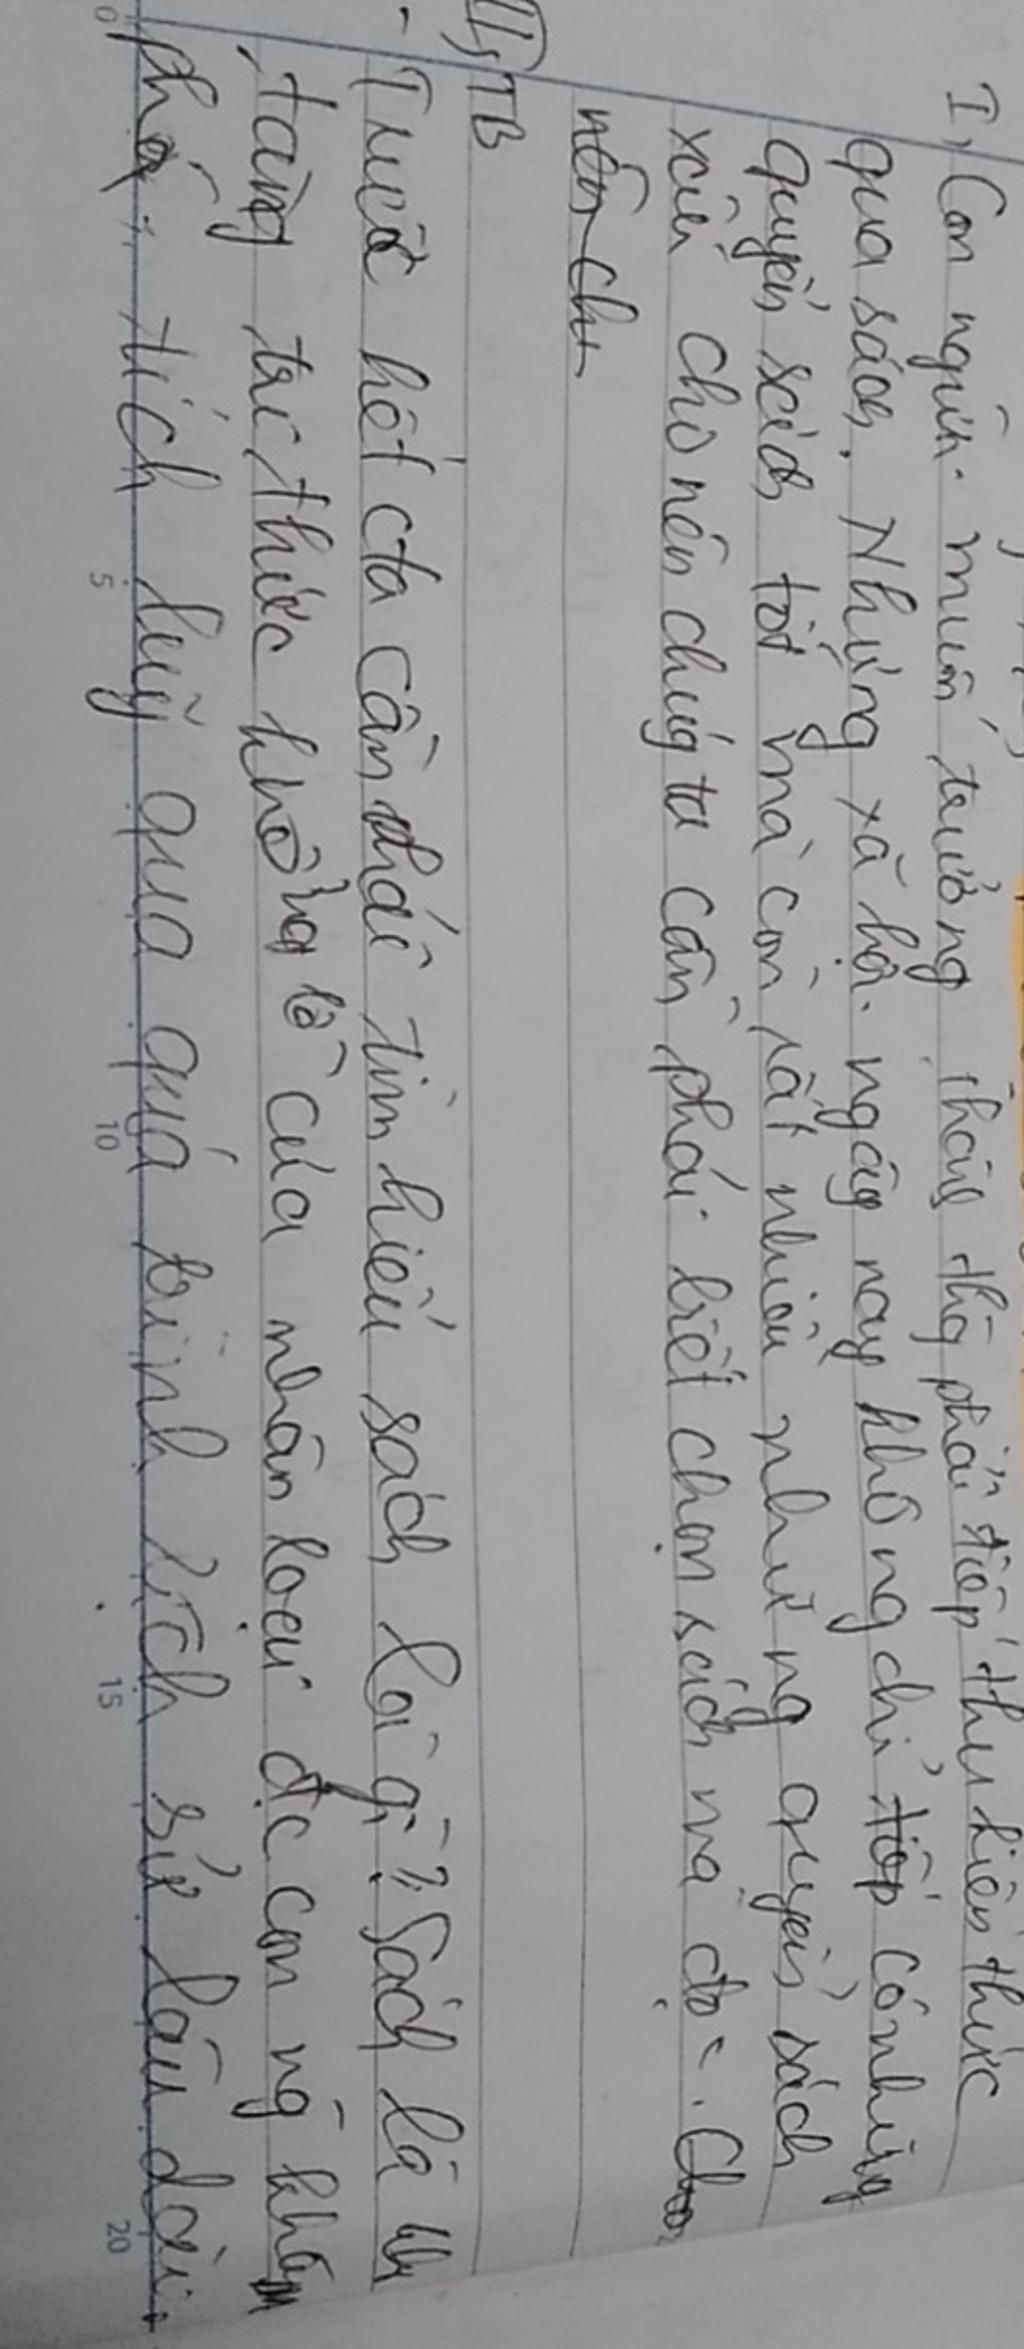 I, Con người muốn trưởng thành thì phải tiếp thu kiến thức
qua sách. Nhưng xã hội ngày nay không chỉ tiếp có những
quyển sách tốt mà còn rất nhiều những quyển sách
xấu cho nên chúng ta cần phải biết chọn sách mà đọc. Cho
nên ch
II, TB
- Trước hết cta cần phải tìm hiểu sách là gì? Sách là kho
tàng tri thức khổng lồ của nhân loại đc con ng khám
phá, tích luỹ qua quá trình lịch sử lâu dài.
0 5 10 15 20